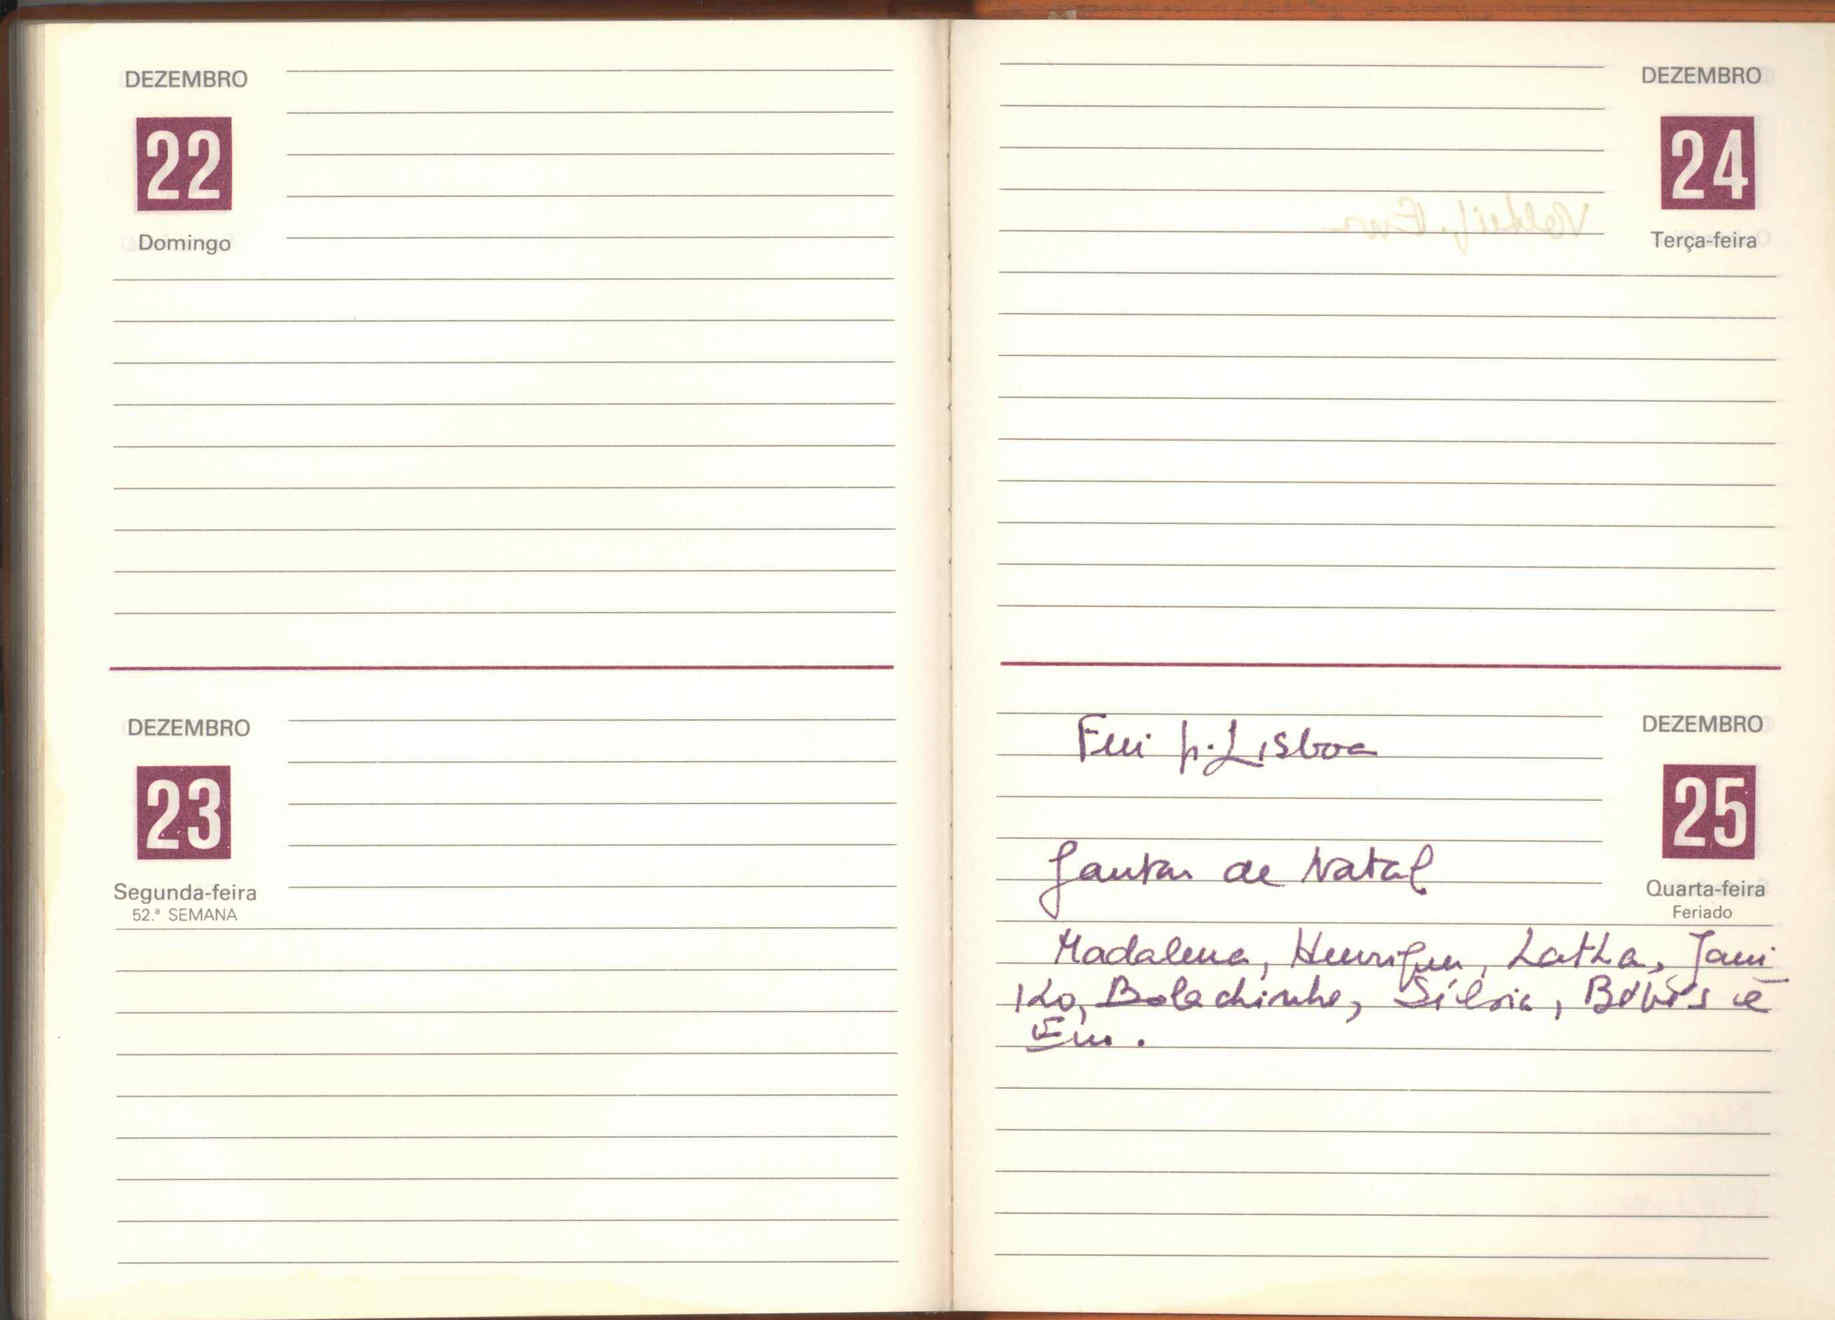 DEZEMBRO
22
Domingo
DEZEMBRO
23
Segunda-feira
52.ª SEMANA
DEZEMBRO
24
Terça-feira
DEZEMBRO
25
Quarta-feira
Feriado
Fui p. Lisboa
Jantar de Natal
Madalena, Henrique, Latha, Jami
ko, Bolachinha, Sílvia, Bóbis e
Eu.